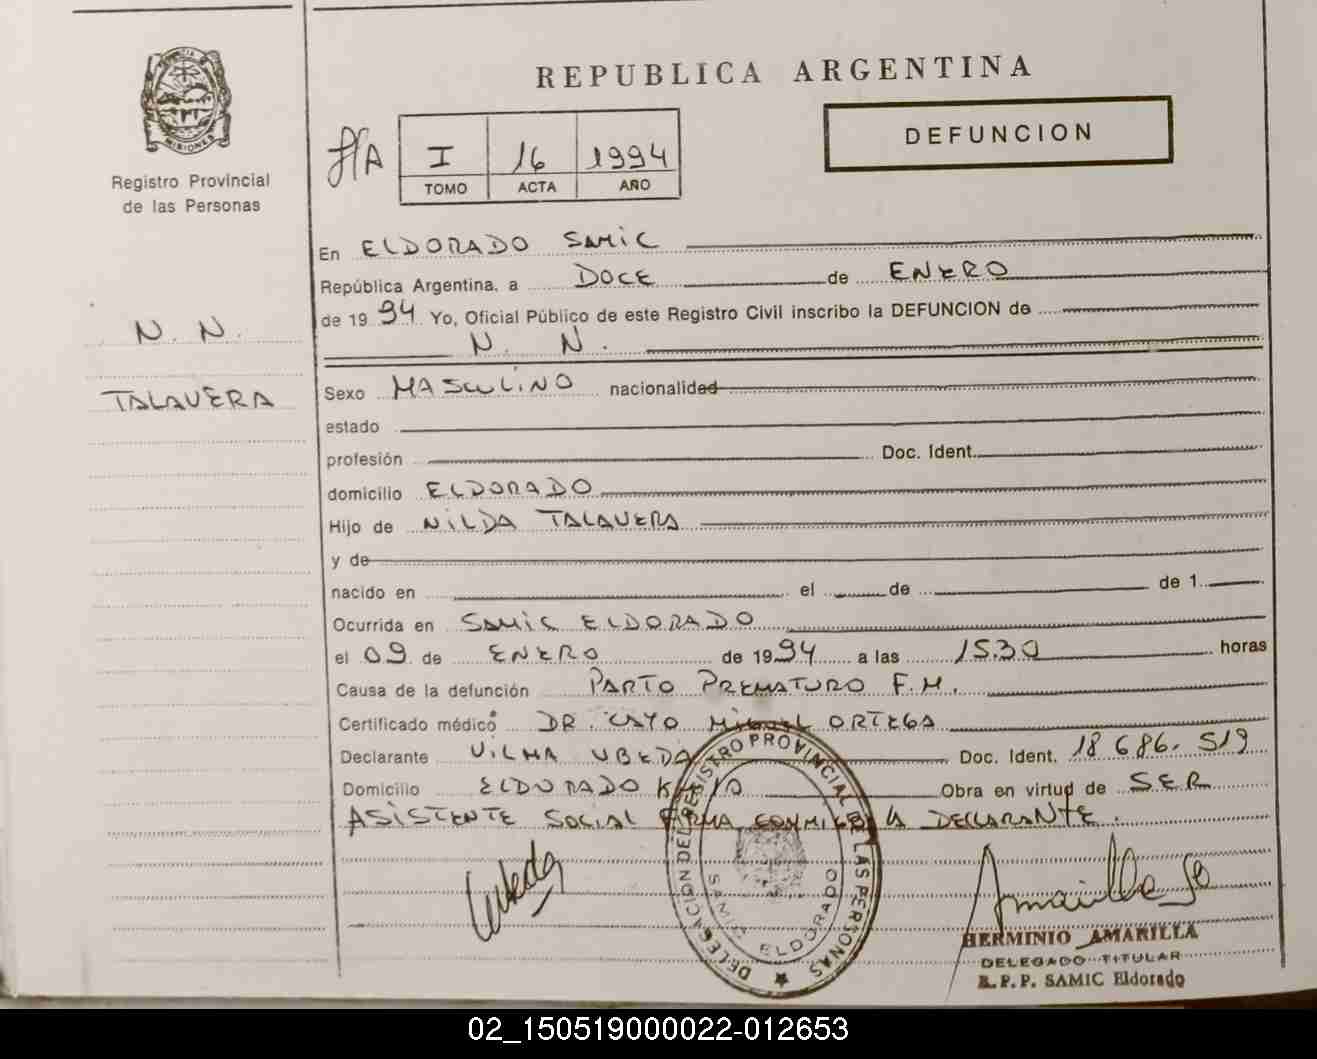 REPUBLICA ARGENTINA
PROVINCIA DE MISIONES
Registro Provincial
de las Personas
I 16 1994
TOMO ACTA AÑO
DEFUNCION
N. N.
TALAVERA
En ELDORADO SAMIC
República Argentina, a DOCE de ENERO
de 1994 Yo, Oficial Público de este Registro Civil inscribo la DEFUNCION de
N. N.
Sexo MASCULINO nacionalidad
estado
profesión Doc. Ident.
domicilio ELDORADO
Hijo de NILDA TALAVERA
y de
nacido en el de de 1
Ocurrida en SAMIC ELDORADO
el 09 de ENERO de 1994 a las 15.30 horas
Causa de la defunción PARTO PREMATURO F.M.
Certificado médico DR. CAYO MIGUEL ORTEGA
Declarante VILMA UBEDA Doc. Ident. 18 686. 519
Domicilio ELDORADO Obra en virtud de SER
ASISTENTE SOCIAL FIRMA CONMIGO LA DECLARANTE.
DELEGACION DEL REGISTRO PROVINCIAL DE LAS PERSONAS
SAMIC ELDORADO
HERMINIO AMARILLA
DELEGADO TITULAR
R. P. P. SAMIC Eldorado
02_150519000022-012653